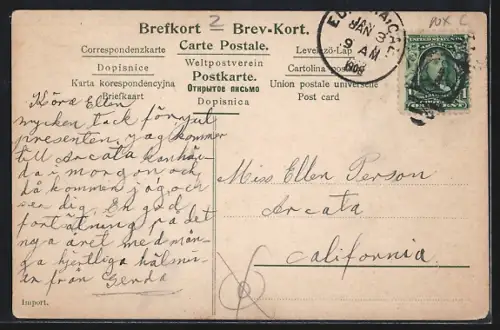 2
Brefkort Brev-Kort.
Carte Postale.
Correspondenzkarte
Levelező-Lap
Dopisnice
Weltpostverein
Cartolina postale
Karta korespondencyjna
Postkarte.
Union postale universelle
Briefkaart
Открытое письмо
Post card
Dopisnica
JAN 3
9 AM
UNITED STATES
1
Kära Ellen
mycken tack för jul
presenten, jag kommer
till Arcata kanhän-
da i morgon och
då kommen jag och
ser dig. En god
fortsätning på det
nya året med mån-
ga hjertliga hälsnin-
från Gerda
Miss Ellen Person
Arcata
California.
Import.